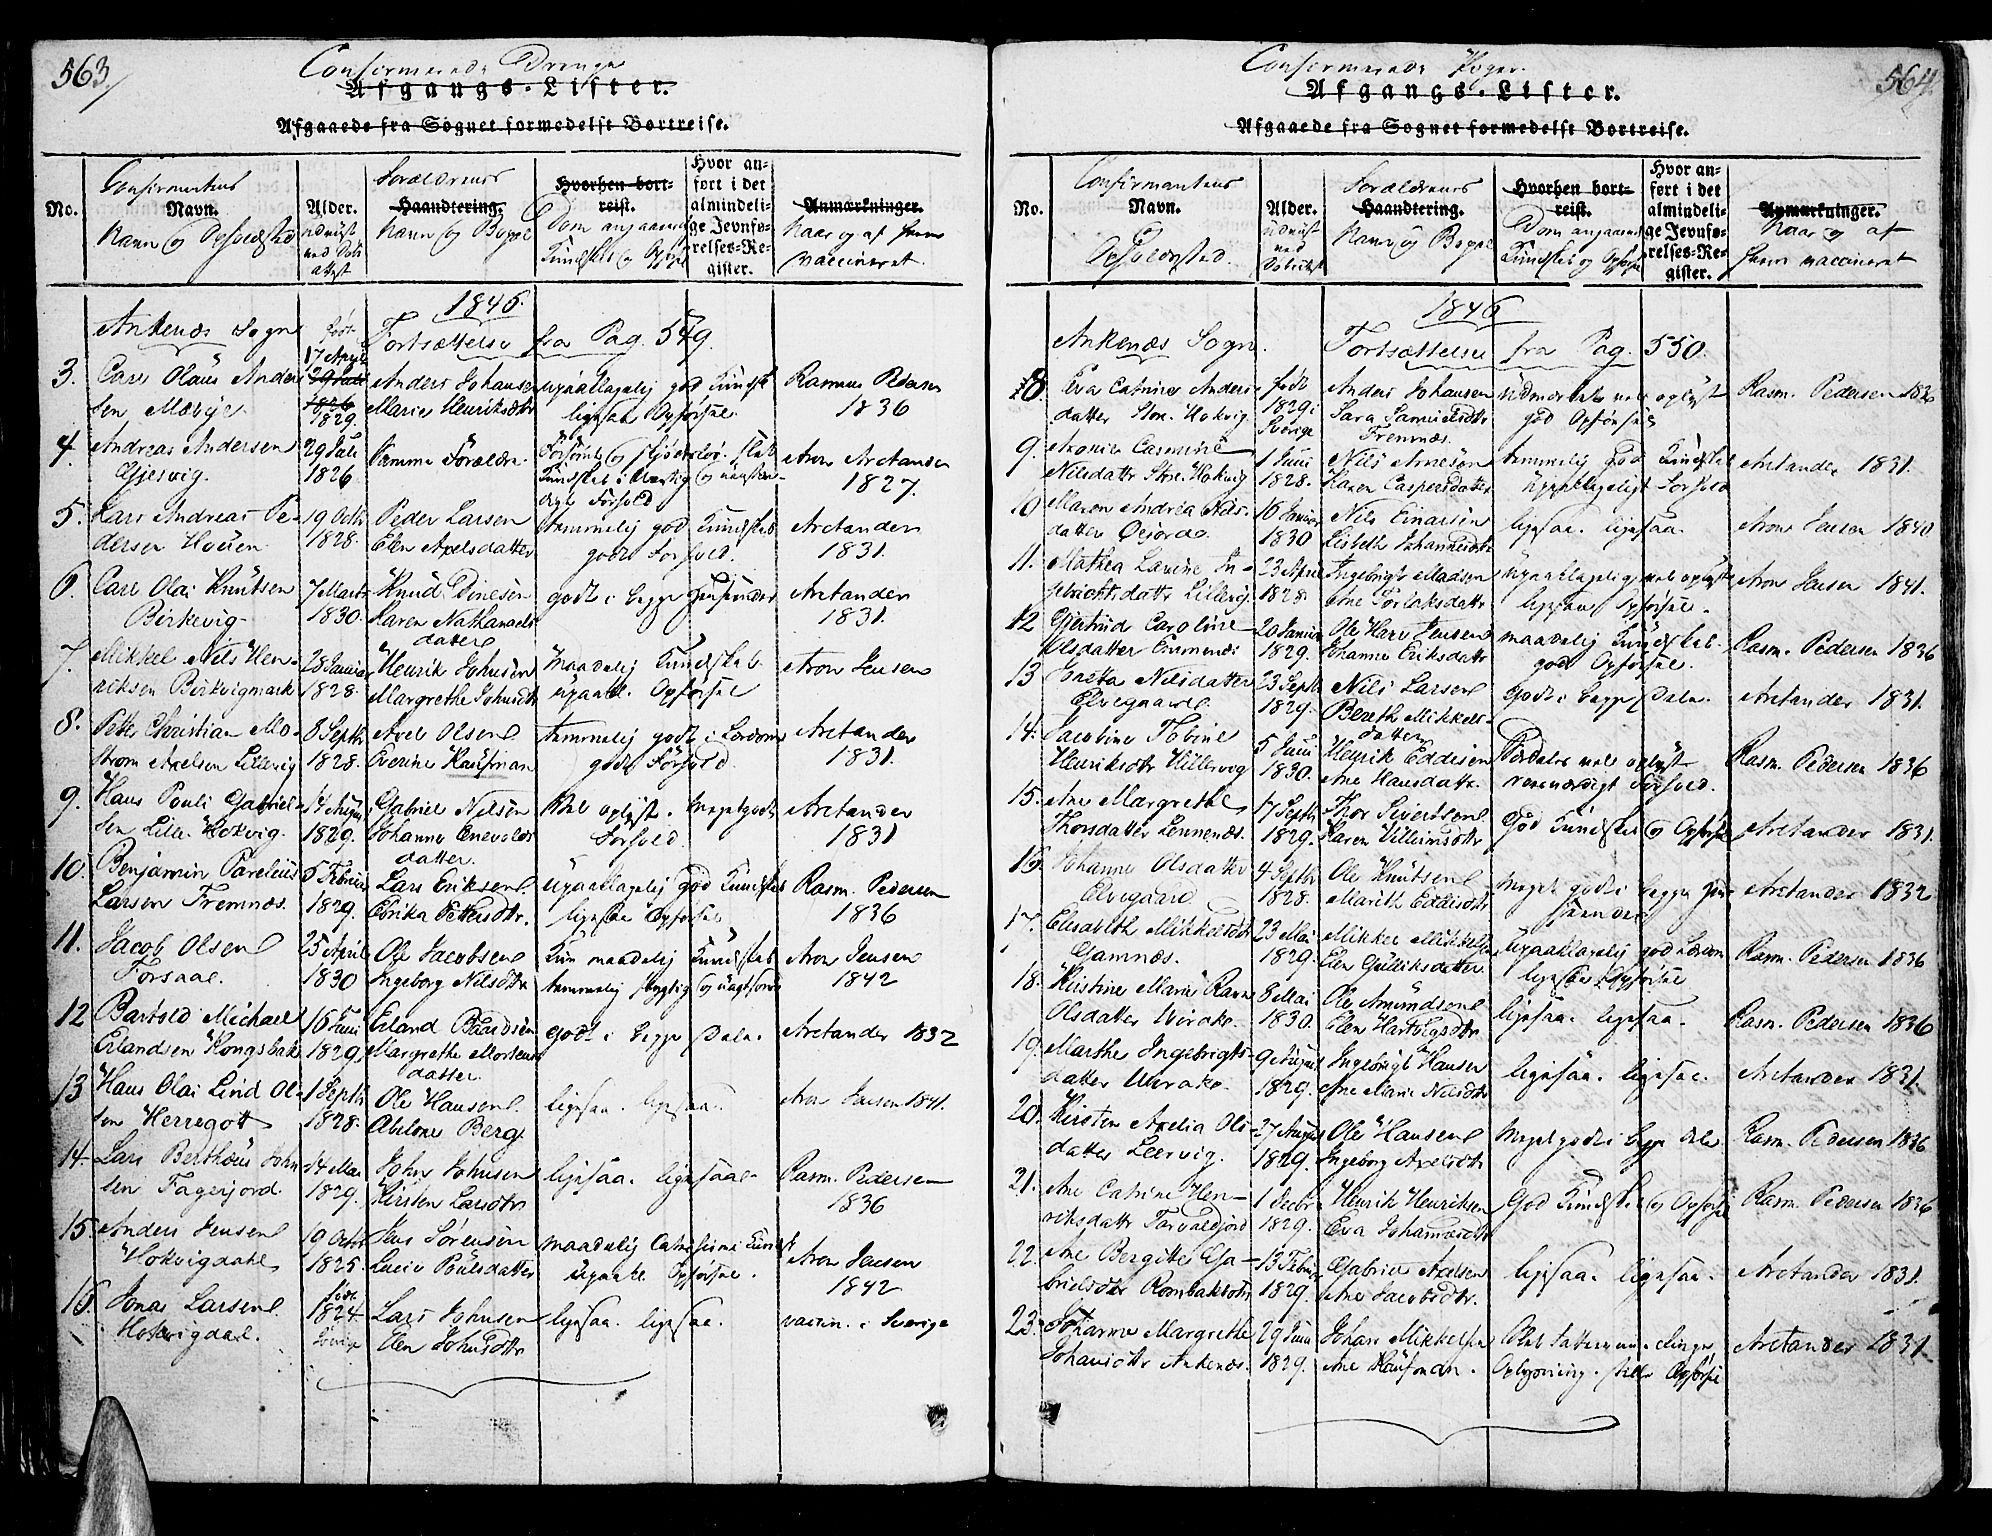 563.
Confirmerede Drenge
Afgangs-Lister.
Afgaaede fra Sognet formedelst Bortreise.
No.
Confirmantens
Navn.
Navn og Opholdsted
Alder.
udviist
ved Døbe
attest
Forældrenes
Haandtering.
Navn og Bopæl
Hvorhen bort-
reist.
Dom angaaende
Kundskab og Opførsel
Hvor an-
ført i det
almindeli-
ge Jevnfø-
relses-Re-
gister.
Anmærkninger.
Naar og af hvem
vaccineret.
1846.
Ankenæs Sogn
Fortsættelse fra Pag. 549.
3. Carl Olaus Ander-
sen
født
17 April
29 Juli
1826
1829.
Anders Johansen
Marie Henriksdtr
upaaklagelig god Kundskb
ligesaa Opførsel.
Rasmus Pedersen
1836
4. Andreas Andersen
Gjesvig.
29 Juli
1826
Samme Forældre.
Kundskab i
dige Forhold
Aron Arctander
1827.
5. Lars Andreas Pe-
dersen
19 Octbr
1828.
Peder Larsen
Elen Axelsdatter
temmelig god Kundskab
godt Forhold.
Arctander
1831.
6. Carl Olai Knutsen
Birkevig
7 Marts
1830.
Knud Dinesen
Karen Nathanaels
datter
godt i begge Henseender
Arctander
1831.
7. Mikkel Nils Hen-
riksen Birkvigmark
28 Januar
1828.
Henrik Johnsen
Margrethe Johnsdtr
maadelig Kundskab.
upaakl. Opførsel
Aron Jensen
8. Petter Christian Mo-
strom Axelsen Lillevig
8 Septbr
1828.
Axel Olsen
Everine Kaufman
temmelig godt i Lærdom
godt Forhold.
Arctander
1831.
9. Hans Pouli Gabriel-
sen Lille Hokvig.
14 August
1829.
Gabriel Nilsen
Johanna Enevolds
datter.
Vel oplyst. meget godt
Forhold.
Arctander
1831
10. Benjamin Pareliius
Larsen Fremnæs.
5 Februar
1829.
Lars Eriksen
Ebrika Pettersdtr.
upaaklagelig god Kundskab
ligesaa Opførsel
Rasm. Pedersen
1836
11. Jacob Olsen
Forsaal.
25 April
1830
Ole Jacobsen
Ingeborg Nilsdtr
Kun maadelig Kundskab
temmelig
Aron Jensen
1842
12 Bartold Michael
Erlandsen Kongsbak
16 Juni
1829.
Erland Baardsen
Margrethe Mortens
datter
godt i begge Dele.
Arctander 1832
13 Hans Olai Lind Ol-
sen Herregott
1 Septbr
1828.
Ole Hansen
Abelone Berg
ligesaa. ligesaa.
Aron Jensen 1841.
14. Lars Berthæus John
sen Fagerjord.
14 Mai
1829.
John Johnsen
Kirsten Larsdtr
ligesaa. ligesaae
Rasm. Pedersen
1836
15. Anders Jensen
Hokvigdahl
19 Octbr
1825
Jens Sörensen
Lucie Poulsdatter
maadelig Catechismi Kundsk
upaakl Opførsel.
Aron Jensen
1842
16. Jonas Larsen
Hokvigdal.
født
1824.
Sverige
Lars Johnsen
Elen Johnsdtr
ligesaa. ligesaa.
vaccin. i Sverige
564.
Confirmerede Piger.
Afgangs-Lister.
Afgaaede fra Sognet formedelst Bortreise.
No.
Confirmantens
Navn.
Opholdsted.
Alder.
udviist
ved
Døbeattest
Forældrenes
Haandtering.
Navn og Bopæl
Hvorhen bort-
reist.
Dom angaaend
Kundskab og Opførsel
Hvor an-
ført i det
almindeli-
ge Jevnfø-
relses-Re-
gister.
Anmærkninger.
Naar og af
hvem vaccineret
1846
Ankenæs Sogn.
Fortsættelse fra Pag. 550.
8. Eva Catrine Anders-
datter Stor. Hokvig.
født
1829 i
Sverige
Anders Johansen
Sara Samuelsdtr
Fremnæs.
udmærket vel oplyst
god Opførsel
Rasm. Pedersen 1836
9. Casmine
Nilsdattr Stor. Hokvig
1 Juni
1828.
Nils Arnesen
Karen Caspersdatter
temmelig god Kundskab
upaaklageligt Forhold
Arctander 1831.
10 Maren Andrea Nils-
datter Øejord.
16 Januar
1830
Nils Einarsen
Lisbeth Johannesdtr
ligesaa. ligesaa.
Aron Jensen 1840
11. Mathea Lavine In-
gebrigtsdattr Lillevig.
23 April
1828.
Ingebrigt Madsen
Ane Torlaksdattr
upaaklagelig vel oplyst
ligesaa Opførsel.
Aron Jensen 1841.
12 Gjertrud Caroline
Olsdatter Emmenes
20 Januar
1829.
Ole Hans Jensen
Johanna Eriksdattr
maadelig Kundskab.
god Opførsel.
Rasm. Pedersen 1836
13 Greta Nilsdatter
Elvegaard.
23 Septbr
1829.
Nils Larsen
Bereth Mikkels-
datter
godt i begge Dele.
Arctander 1831.
14. Jacobine Tobine
Henriksdtr Hillervig
5 Juni
1830.
Henrik Eddisen
Ane Hansdattr.
Særdeles vel oplyst
roesværdigt Forhold.
Rasm. Pedersen 1836
15. Ane Margrethe
Thorsdatter Lennenæs.
17 Septbr
1829.
Thor Sivertsen
Karen Villumsdtr
God Kundskab og Opførsel
Arctander 1831.
16. Johanne Olsdatter
Elvegaard
4 Septbr
1828.
Ole Knutsen
Marith Eddisdtr
meget godt i begge Hen-
seender
Arctander 1832
17. Elisabeth Mikkelsdtr
Gamnæs.
23 Mai
1829.
Mikkel Mikkelsen
Elen Gulliksdatter
upaaklagelig god Lærdom
ligesaa Opførsel
Rasm. Pedersen 1836
18. Kirstine Marie Ravn
Olsdatter Virake.
8 Mai
1830.
Ole Amundsen
Elen Hartvigsdtr
ligesaa. ligesaa.
Rasm. Pedersen 1836
19. Marthe Ingebrigts-
datter Virake.
9 August
1829.
Ingebrigt Hansen
Ane Marie Nilsdtr
ligesaa. ligesaa.
Arctander 1831.
20. Kirsten Axelia Ols-
datter Leervig.
27 August
1829.
Ole Hansen
Ingeborg Axelsdtr
meget godt i begge Dele
Rasm. Pedersen 1836
21. Ane Catrine Hen-
riksdattr Tarvaldjord
1 Decbr
1829.
Henrik Henriksen
Eva Johannesdtr
God Kundskab og Opførsel
Rasm. Pedersen 1836
22. Ane Bergitte Ga-
brielsdtr Rombaksbotn
13 Februar
1829.
Gabriel Axelsen
Ane Jacobsdtr.
ligesaa. ligesaa.
Arctander 1831.
23. Johanne Margrethe
Johansdtr Ankenæs.
29 Juni
1829.
Johan Mikkelsen
Ane Kaufman.
Oplysning. stille Opførsel
Arctander 1831.